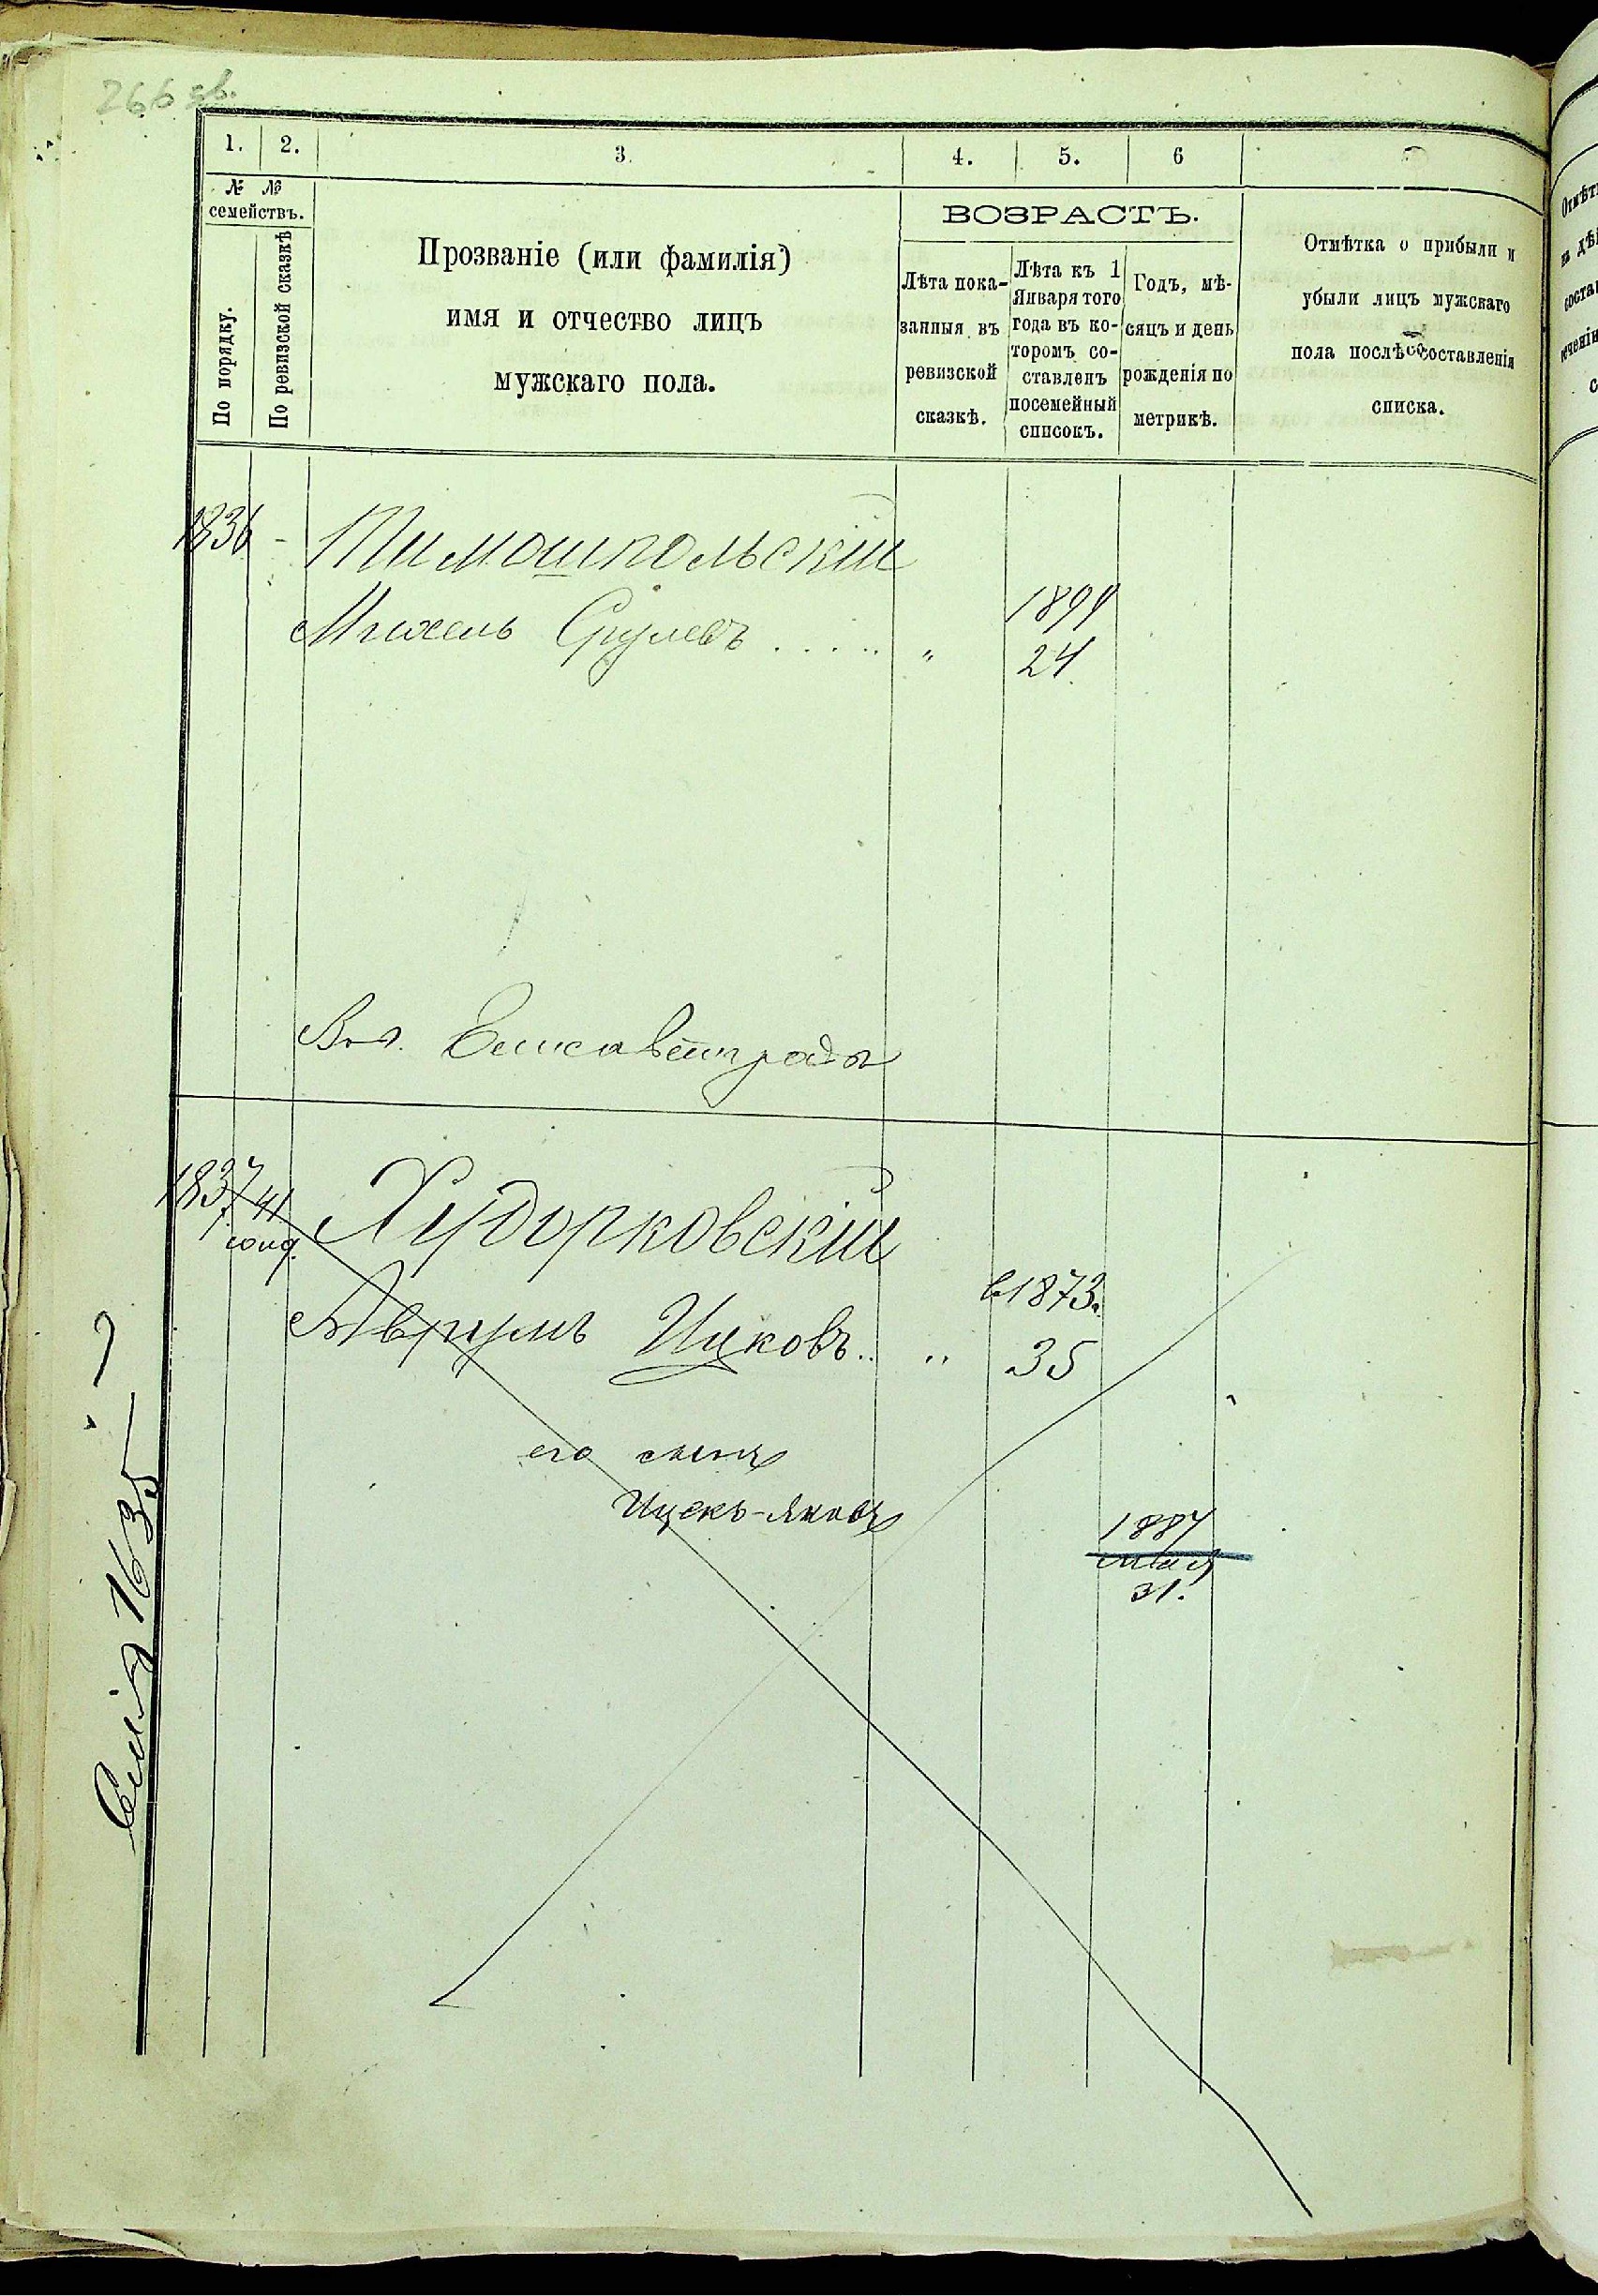 266 зв.
1. 2. 3. 4. 5. 6
№ №
семействъ.
По порядку.
По ревизской сказкѣ
Прозваніе (или фамилія)
имя и отчество лицъ
мужскаго пола.
ВОЗРАСТЪ.
Лѣта пока-
занныя въ
ревизской
сказкѣ.
Лѣта къ 1
Января того
года въ ко-
торомъ со-
ставленъ
посемейный
списокъ.
Годъ, мѣ-
сяцъ и день
рожденія по
метрикѣ.
Отмѣтка о прибыли и
убыли лицъ мужскаго
пола послѣ составленія
списка.
1836 - Тимошпольскій
1894
Михель Срулевъ ..... " 24.
Елисаветграда
1837 41 Худорковскій
в 1873.
Аврумъ Ицковъ.. " 35
его сынъ
Ицекъ-Яковъ
1887
мая
31.
Смія 1635